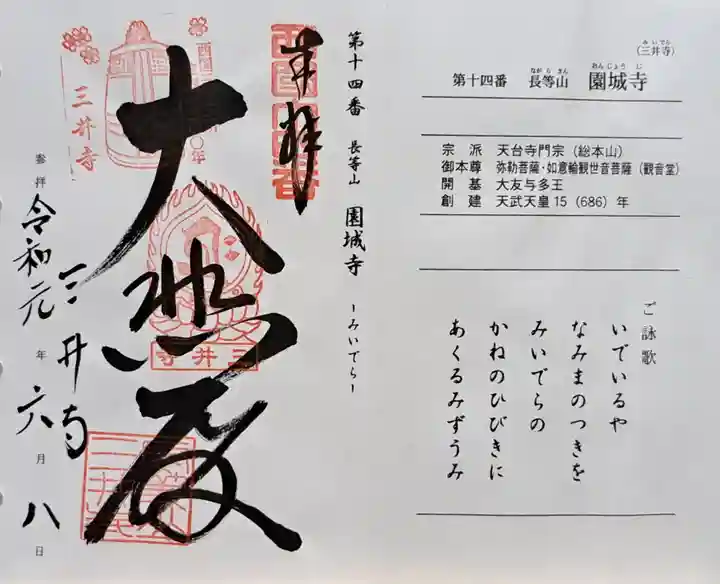 (三井寺)
みいでら
第十四番 長等山 園城寺
ながらさん おんじょうじ
宗派 天台寺門宗(総本山)
御本尊 弥勒菩薩・如意輪観世音菩薩(観音堂)
開基 大友与多王
創建 天武天皇15(686)年
ご詠歌
いでいるや
なみまのつきを
みいでらの
かねのひびきに
あくるみずうみ
第十四番 長等山 園城寺 ーみいでらー
奉拝
大悲殿
三井寺
参拝 令和元年六月八日
三井寺
三井寺